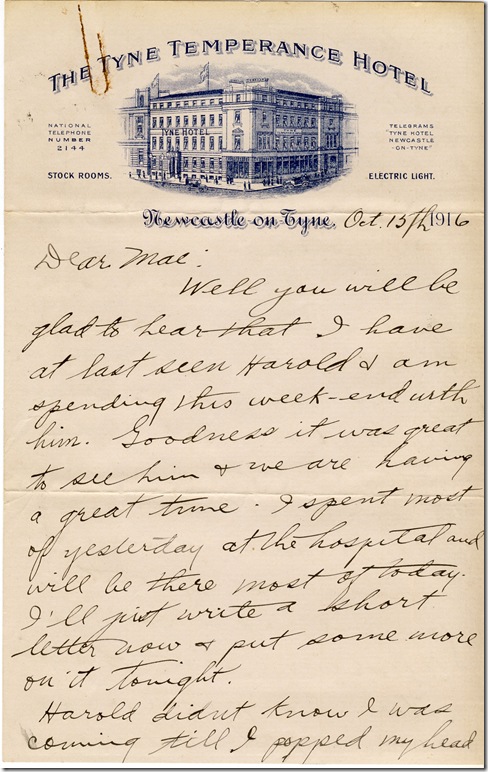 THE TYNE TEMPERANCE HOTEL
TYNE HOTEL
NATIONAL
TELEPHONE
NUMBER
2144
TELEGRAMS
"TYNE HOTEL
NEWCASTLE
-ON-TYNE"
STOCK ROOMS.
ELECTRIC LIGHT.
Newcastle-on-Tyne, Oct. 15th 1916
Dear Mac:
Well you will be
glad to hear that I have
at last seen Harold & am
spending this week-end with
him. Goodness it was great
to see him & we are having
a great time. I spent most
of yesterday at the hospital and
will be there most of today.
I'll just write a short
letter now & put some more
on it tonight.
Harold didnt know I was
coming till I popped my head